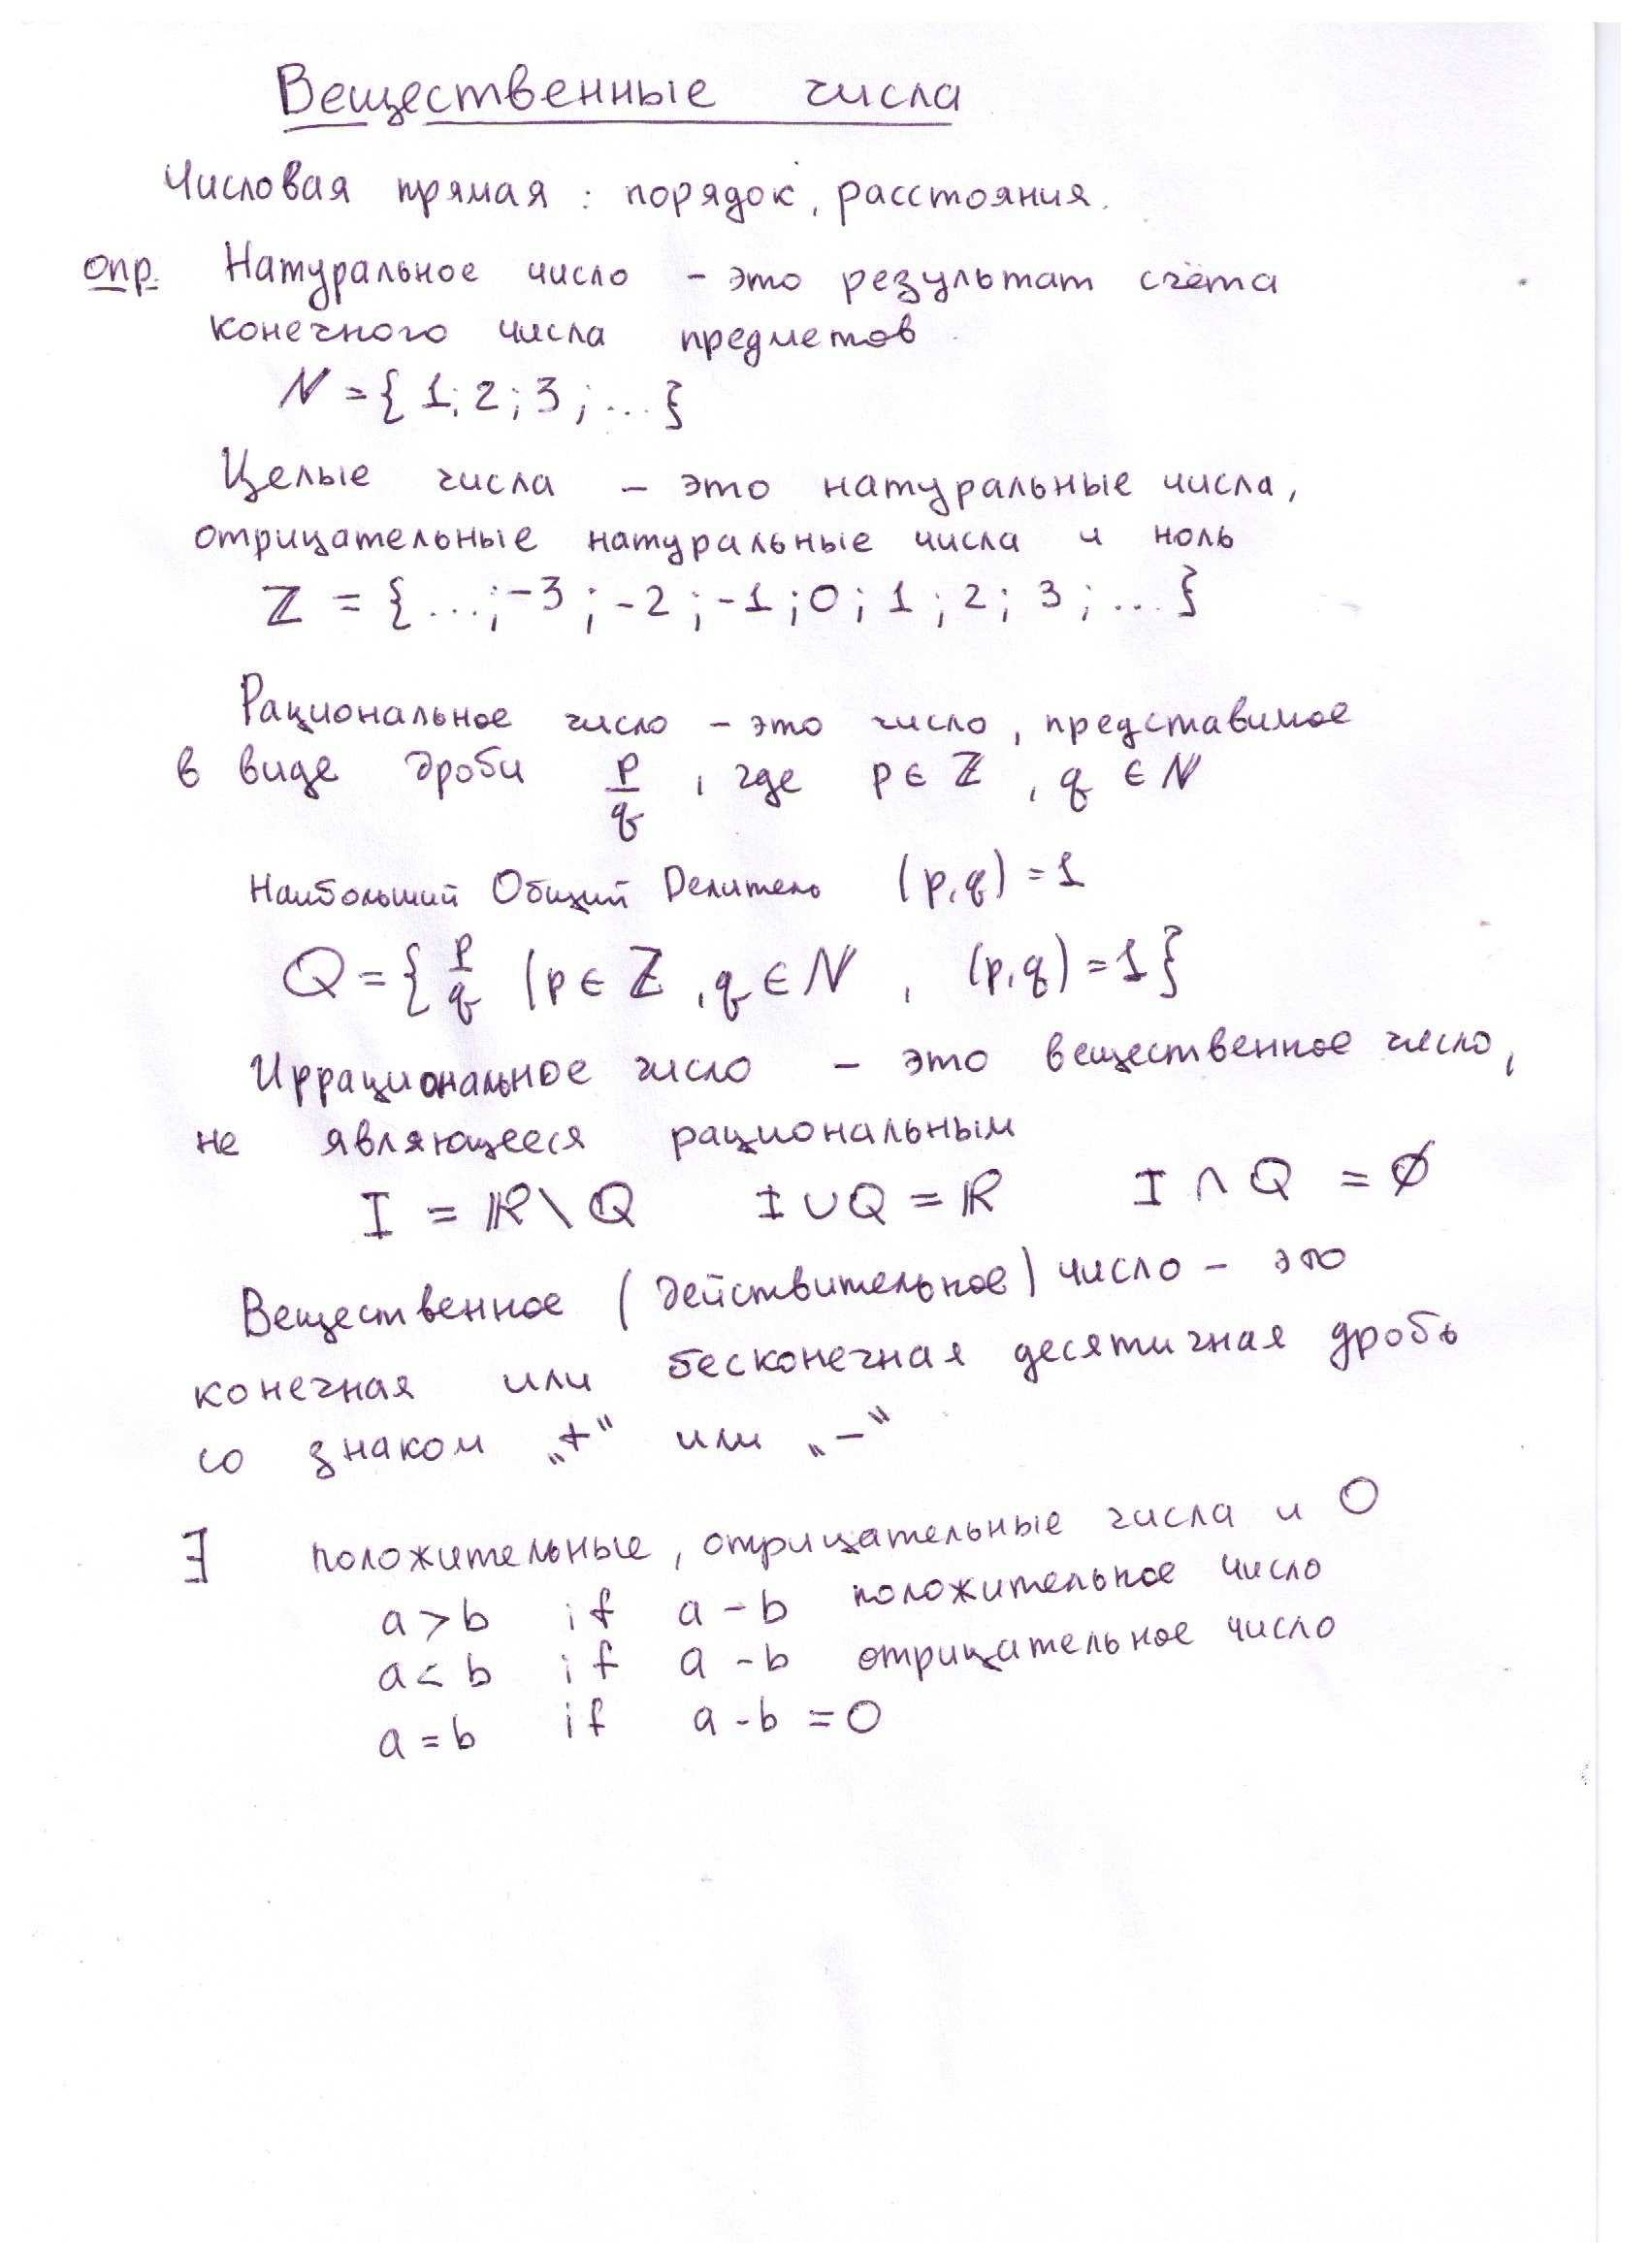 Вещественные числа
Числовая прямая: порядок, расстояния.
опр. Натуральное число - это результат счёта
конечного числа предметов.
ℕ = { 1; 2; 3; ... }
Целые числа – это натуральные числа,
отрицательные натуральные числа и ноль
ℤ = { ...; -3; -2; -1; 0; 1; 2; 3; ... }
Рациональное число – это число, представимое
в виде дроби p/q, где p ∈ ℤ, q ∈ ℕ
Наибольший Общий Делитель (p, q) = 1
Q = { p/q | p ∈ ℤ, q ∈ ℕ, (p, q) = 1 }
Иррациональное число – это вещественное число,
не являющееся рациональным
I = ℝ \ Q I ∪ Q = ℝ I ∩ Q = ∅
Вещественное (действительное) число – это
конечная или бесконечная десятичная дробь
со знаком „+“ или „–“
∃ положительные, отрицательные числа и 0
a > b if a - b положительное число
a < b if a - b отрицательное число
a = b if a - b = 0